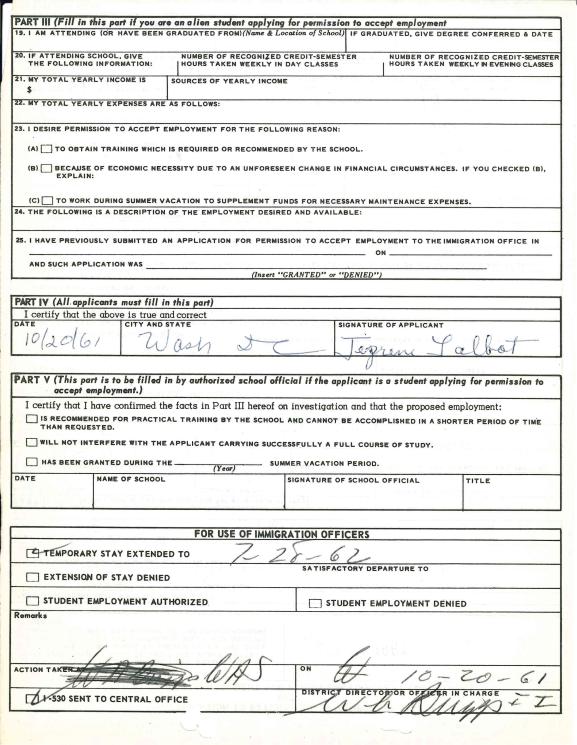 PART III (Fill in this part if you are an alien student applying for permission to accept employment
19. I AM ATTENDING (OR HAVE BEEN GRADUATED FROM)(Name & Location of School) IF GRADUATED, GIVE DEGREE CONFERRED & DATE
20. IF ATTENDING SCHOOL, GIVE THE FOLLOWING INFORMATION:
NUMBER OF RECOGNIZED CREDIT-SEMESTER HOURS TAKEN WEEKLY IN DAY CLASSES
NUMBER OF RECOGNIZED CREDIT-SEMESTER HOURS TAKEN WEEKLY IN EVENING CLASSES
21. MY TOTAL YEARLY INCOME IS
$
SOURCES OF YEARLY INCOME
22. MY TOTAL YEARLY EXPENSES ARE AS FOLLOWS:
23. I DESIRE PERMISSION TO ACCEPT EMPLOYMENT FOR THE FOLLOWING REASON:
(A) TO OBTAIN TRAINING WHICH IS REQUIRED OR RECOMMENDED BY THE SCHOOL.
(B) BECAUSE OF ECONOMIC NECESSITY DUE TO AN UNFORESEEN CHANGE IN FINANCIAL CIRCUMSTANCES. IF YOU CHECKED (B),
EXPLAIN:
(C) TO WORK DURING SUMMER VACATION TO SUPPLEMENT FUNDS FOR NECESSARY MAINTENANCE EXPENSES.
24. THE FOLLOWING IS A DESCRIPTION OF THE EMPLOYMENT DESIRED AND AVAILABLE:
25. I HAVE PREVIOUSLY SUBMITTED AN APPLICATION FOR PERMISSION TO ACCEPT EMPLOYMENT TO THE IMMIGRATION OFFICE IN
ON
AND SUCH APPLICATION WAS
(Insert "GRANTED" or "DENIED")
PART IV (All applicants must fill in this part)
I certify that the above is true and correct
DATE CITY AND STATE SIGNATURE OF APPLICANT
10/20/61 Wash D C Talbot
PART V (This part is to be filled in by authorized school official if the applicant is a student applying for permission to
accept employment.)
I certify that I have confirmed the facts in Part III hereof on investigation and that the proposed employment:
IS RECOMMENDED FOR PRACTICAL TRAINING BY THE SCHOOL AND CANNOT BE ACCOMPLISHED IN A SHORTER PERIOD OF TIME
THAN REQUESTED.
WILL NOT INTERFERE WITH THE APPLICANT CARRYING SUCCESSFULLY A FULL COURSE OF STUDY.
HAS BEEN GRANTED DURING THE SUMMER VACATION PERIOD.
(Year)
DATE NAME OF SCHOOL SIGNATURE OF SCHOOL OFFICIAL TITLE
FOR USE OF IMMIGRATION OFFICERS
TEMPORARY STAY EXTENDED TO 7-28-62
SATISFACTORY DEPARTURE TO
EXTENSION OF STAY DENIED
STUDENT EMPLOYMENT AUTHORIZED STUDENT EMPLOYMENT DENIED
Remarks
ACTION TAKEN AT WAS ON 10-20-61
I-530 SENT TO CENTRAL OFFICE DISTRICT DIRECTOR OR OFFICER IN CHARGE